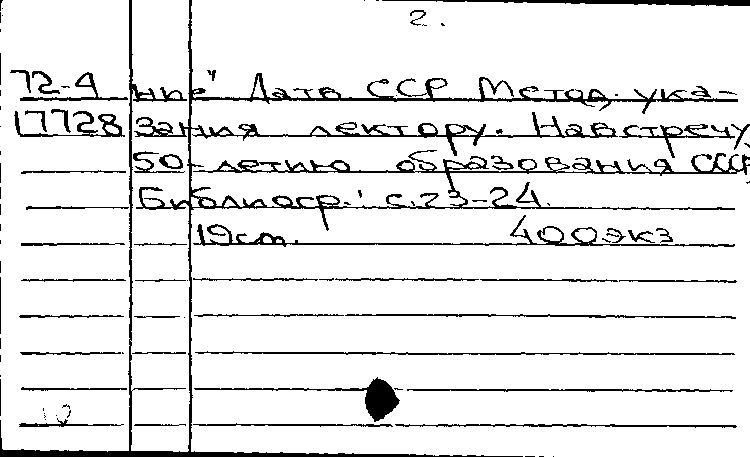 2.
72-4 ние" Латв ССР Метод. ука-
17728 зания лектору. Навстречу
50-летию образования СССР
Библиогр.: с.23-24.
19см. 400экз
10